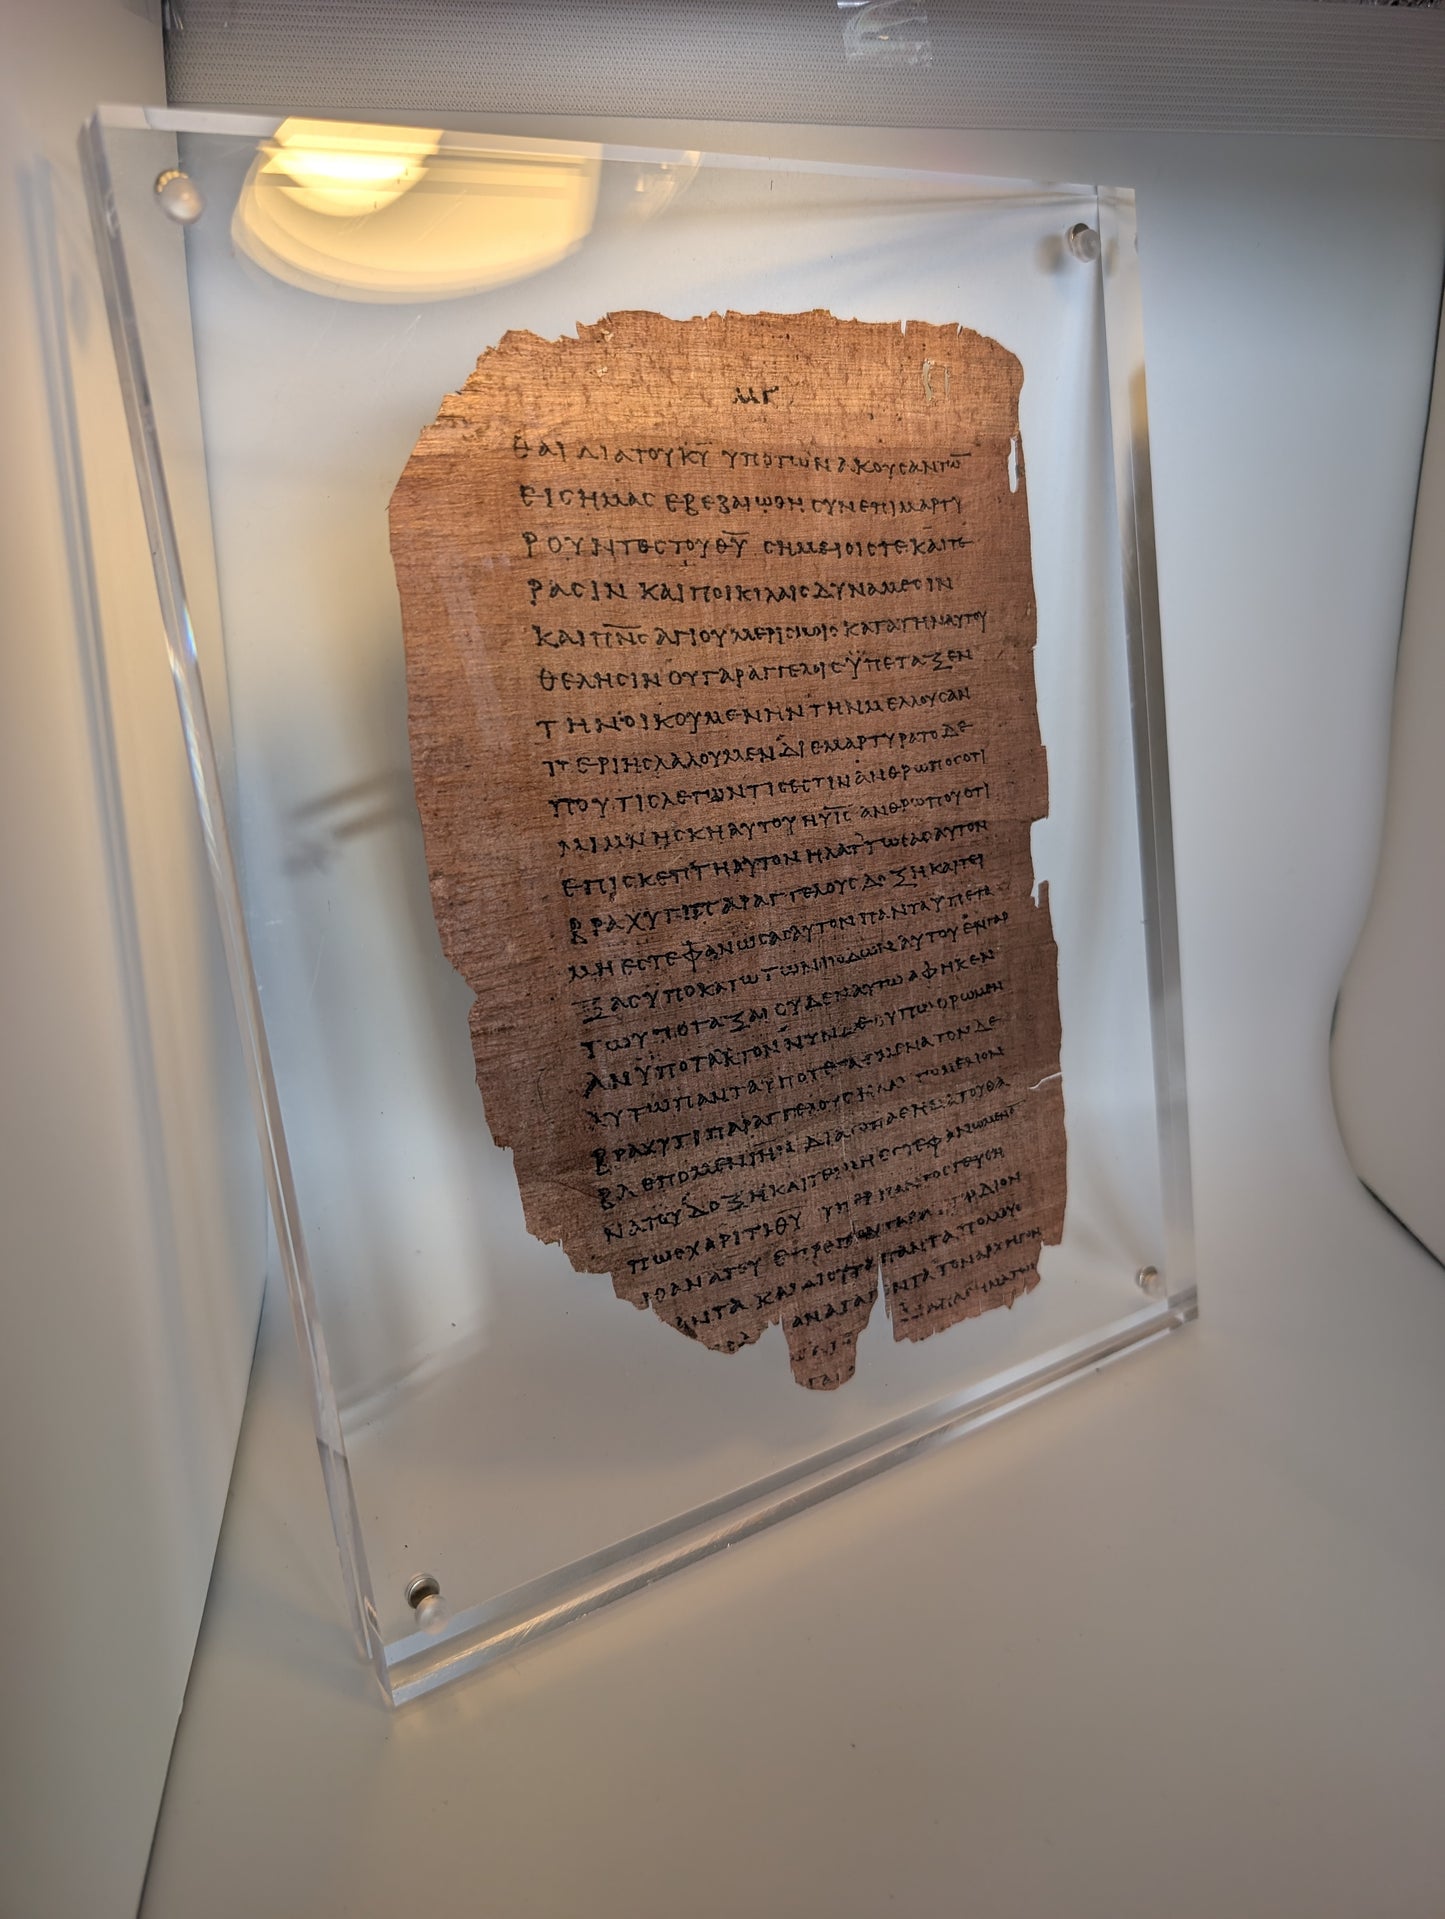 μγ
θαι δια του κ̅υ̅ υπο των ακουσαντω̅
εις ημας εβεβαιωθη συνεπιμαρτυ
ρουντος του θ̅υ̅ σημειοις τε και τε
ρασιν και ποικιλαις δυναμεσιν
και π̅ν̅ς̅ αγιου μερισμοις κατα την αυτου
θελησιν ου γαρ αγγελοις ϋπεταξεν
την οικουμενην την μελλουσαν
περι ης λαλουμεν διεμαρτυρατο δε
που τις λεγων τις εστιν ανθρωπος οτι
μιμνησκη αυτου η υ̅ι̅ς̅ ανθρωπου οτι
επισκεπτη αυτον ηλαττωσας αυτον
βραχυ τι παρ αγγελους δοξη και τει
μη εστεφανωσας αυτον παντα ϋπετα
ξας ϋποκατω των ποδων αυτου εν γαρ
τω ϋποταξαι ουδεν αυτω αφηκεν
ανϋποτακτον νυν δε ουπω ορωμεν
αυτω παντα ϋποτεταγμενα τον δε
βραχυ τι παρ αγγελους ηλαττωμενον
βλεπομεν ι̅η̅ν̅ δια το παθημα του θα
νατου δοξη και τειμη εστεφανωμενο̅
πως χαριτι θ̅υ̅ υπερ παντος γευση
θανατου επρεπεν γαρ δι ον
παντα και δι ου τα παντα πολλους
αγαγοντα τον αρχηγον